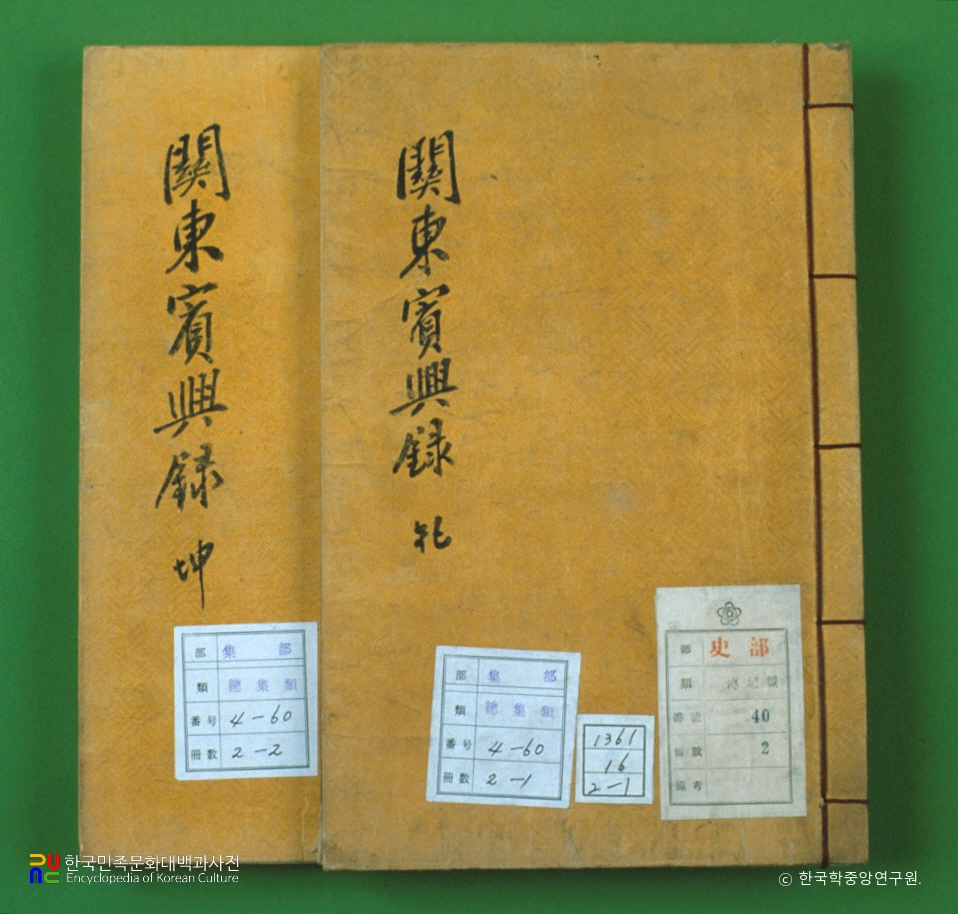 關東賓興錄 坤
關東賓興錄 乾
部 集部
類 總集類
番号 4-60
冊數 2-2
部 集部
類 總集類
番号 4-60
冊數 2-1
1361
16
2-1
部 史部
類 傳記類
番號 40
冊數 2
備考
한국민족문화대백과사전
Encyclopedia of Korean Culture
ⓒ 한국학중앙연구원.